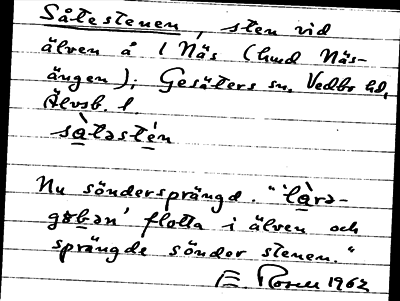 Såtestenen, sten vid
älven å 1 Näs (hmd Näs-
ängen), Gesäters sn, Vedbo hd,
Älvsb. l.
sàtəsten
Nu söndersprängd. "làrə-
gɷbən' flotta i älven och
sprängde sönder stenen."
E. 1962